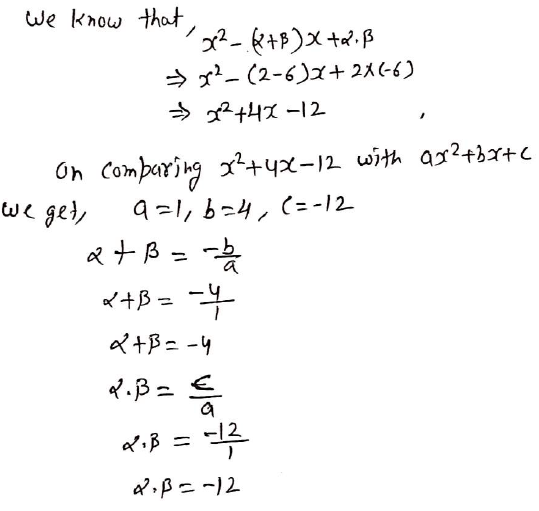 We know that,
x² - (α+β)x + α.β
⇒ x² - (2-6)x + 2×(-6)
⇒ x² + 4x - 12 ,
On comparing x²+4x-12 with ax²+bx+c
we get, a=1, b=4, c=-12
α + β = -b/a
α+β = -4/1
α+β = -4
α.β = c/a
α.β = -12/1
α.β = -12